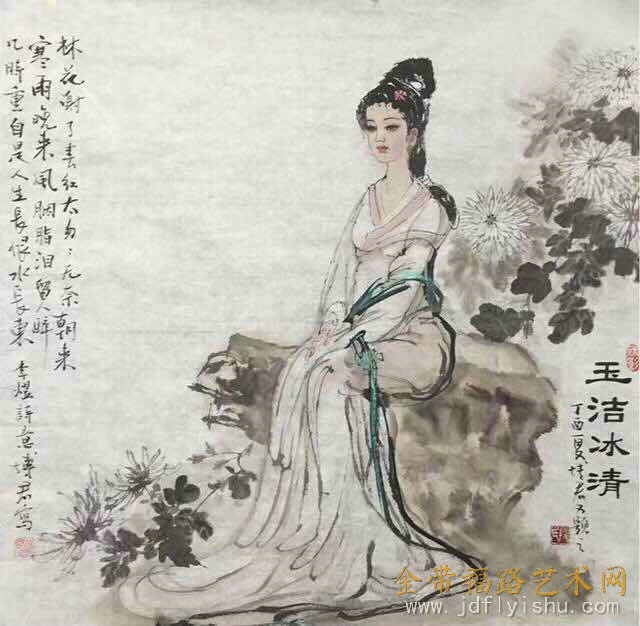 玉洁冰清
丁酉夏君又題之
林花谢了春红太匆匆无奈朝来
寒雨晚来风胭脂泪留人醉
几时重自是人生長恨水長東 李煜詩意君寫
金带福路艺术网
www.jdflyishu.com